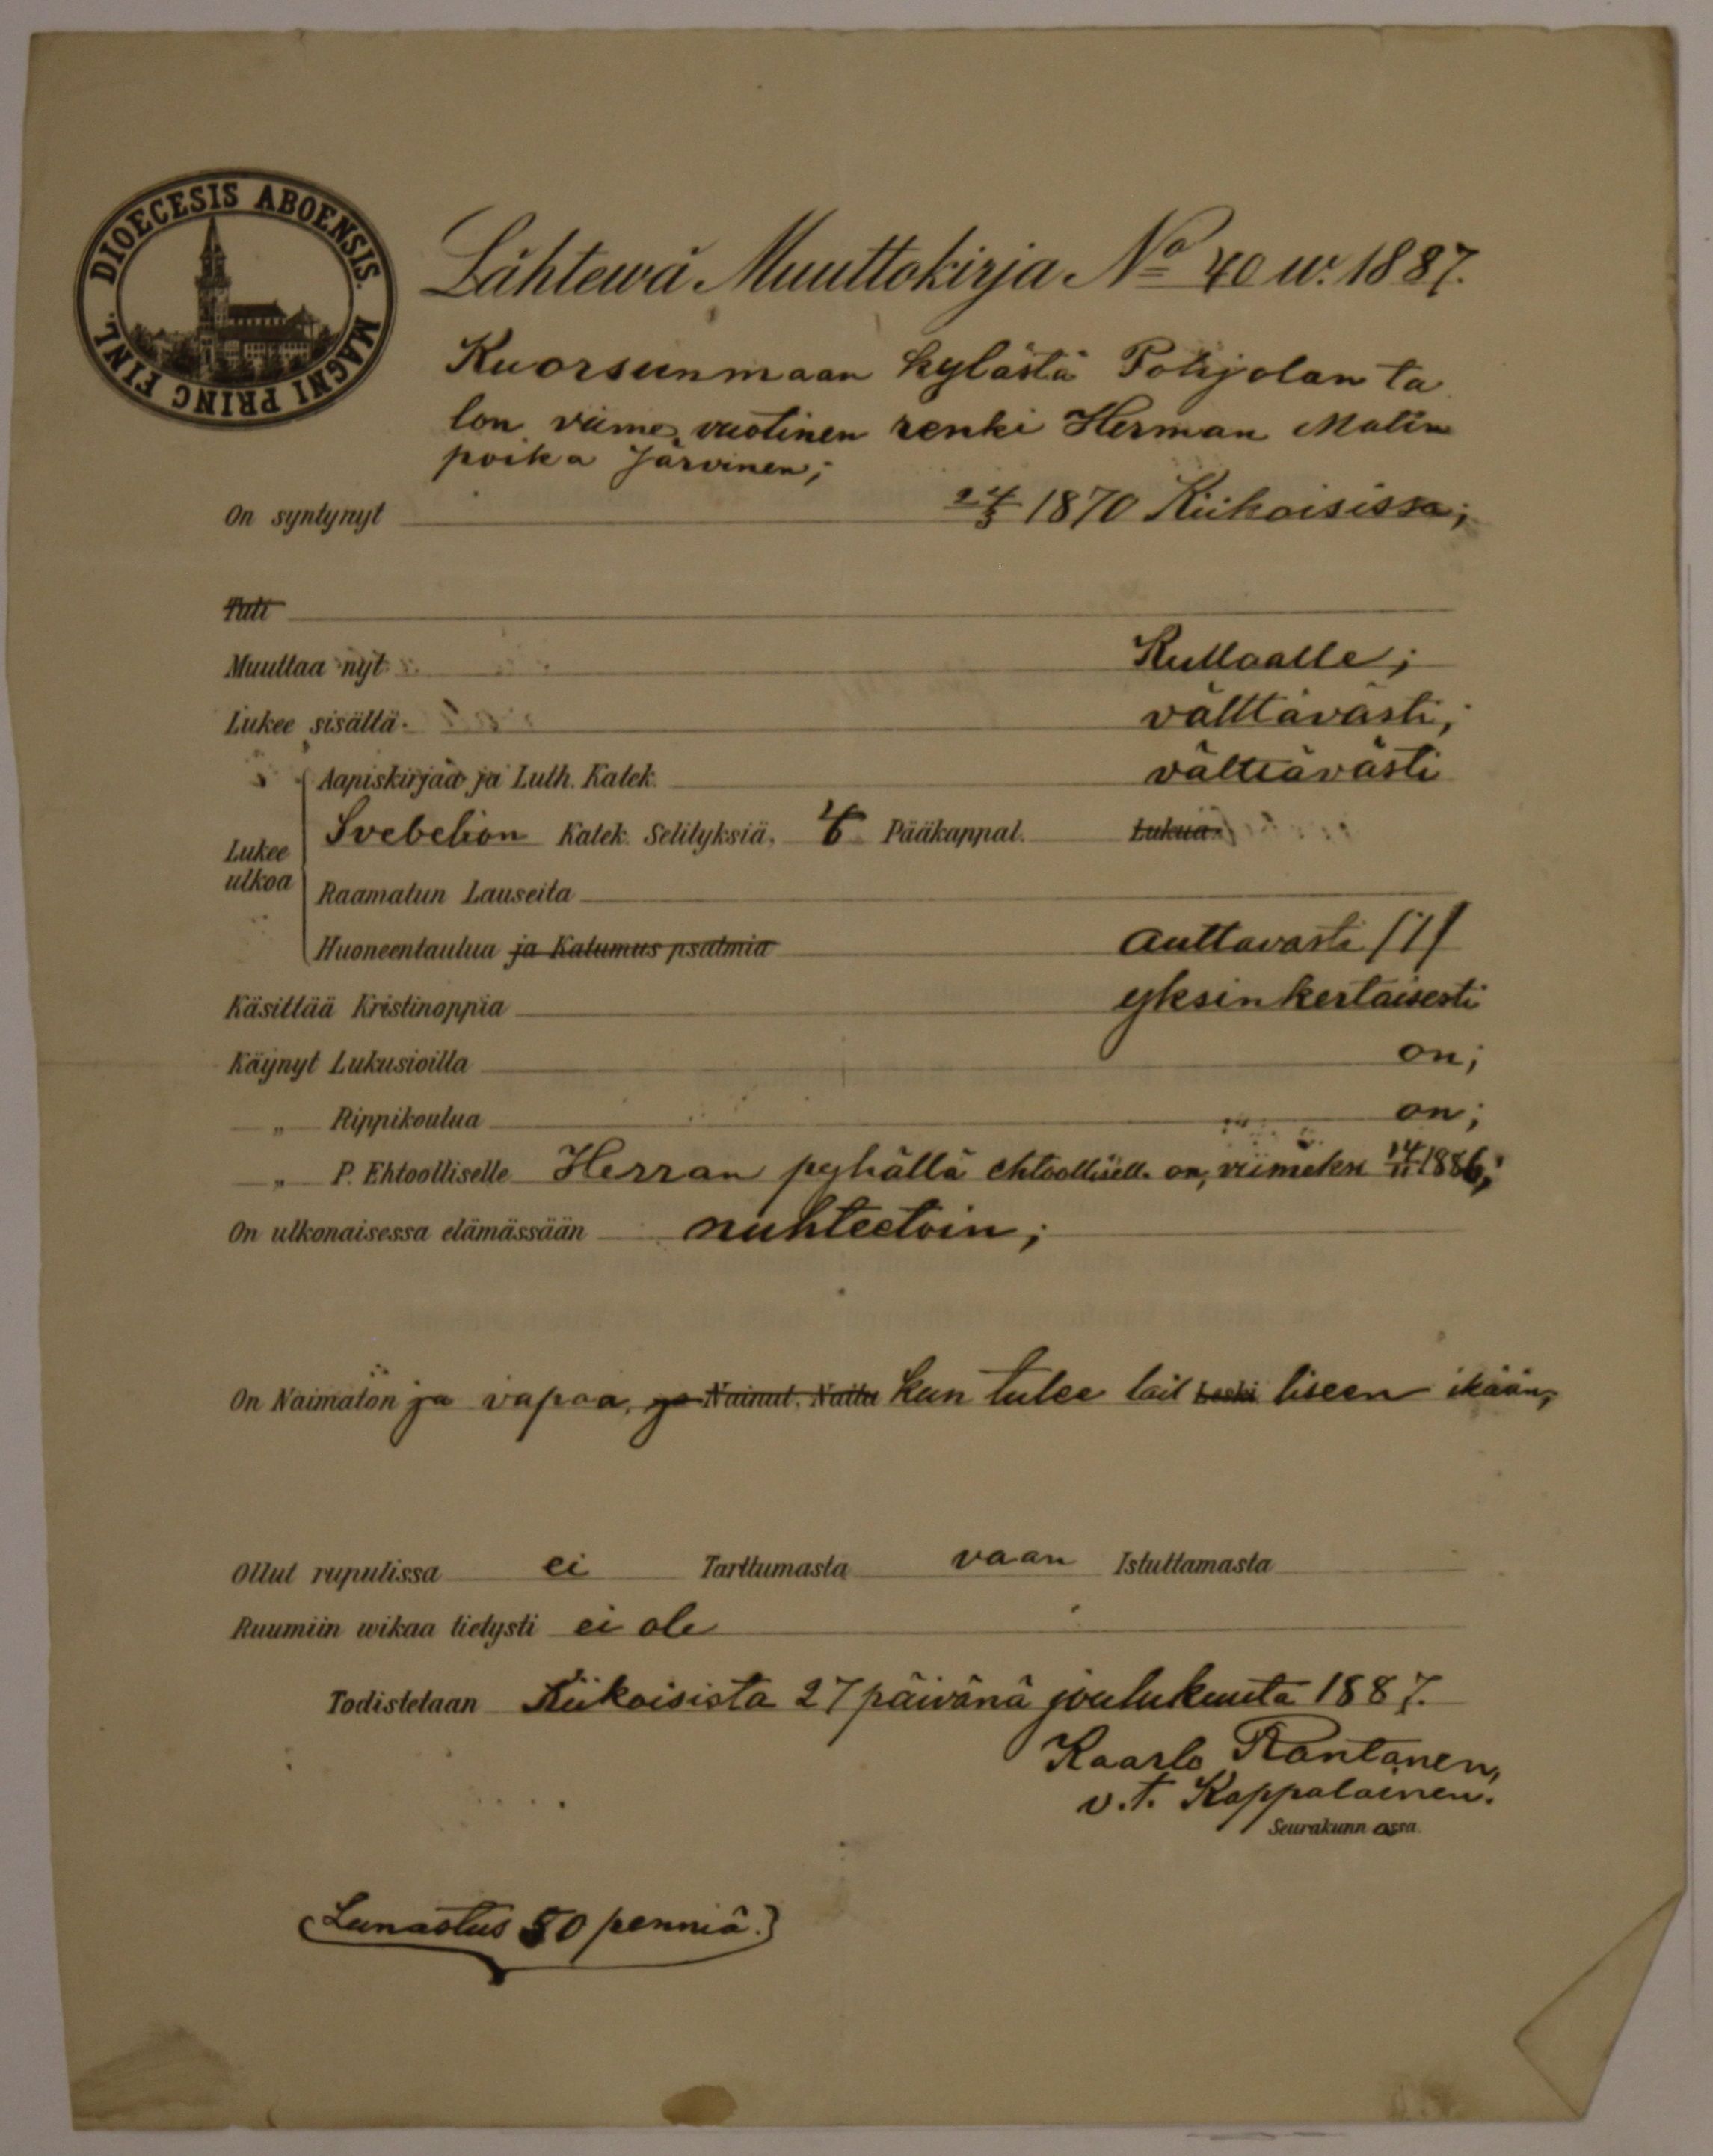 DIOECESIS ABOENSIS. MAGNI PRINC FINL.
Lähtewä Muuttokirja No 40 w. 1887.
Kuorsunmaan kylästä Pohjolan ta
lon viime vuotinen renki Herman Matin
poika Järvinen;
On syntynyt 24/3 1870 Kiikoisissa;
Tuli
Muuttaa nyt Kullaalle;
Lukee sisältä välttävästi;
Aapiskirjaa ja Luth. Katek. välttävästi
Lukee ulkoa
Svebelion Katek. Selityksiä, Pääkappal. Lukua
Raamatun Lauseita
Huoneentaulua ja Katumus psalmia auttavasti /1/
Käsittää Kristinoppia yksinkertaisesti
Käynyt Lukusioilla on;
„ Rippikoulua on;
„ P. Ehtoolliselle Herran pyhällä ehtoollisella on, viimeksi 14/11 1886;
On ulkonaisessa elämässään nuhteetoin;
On Naimaton ja vapaa, ja Nainut, Naitu kun tulee lail Leski liseen ikään,
Ollut rupulissa ei Tarttumasta vaan Istuttamasta
Ruumiin wikaa tietysti ei ole
Todistetaan Kiikoisista 27 päivänä joulukuuta 1887.
Kaarlo Rantanen,
v.t. Kappalainen.
Seurakunn assa.
(Lunastus 50 penniä.)